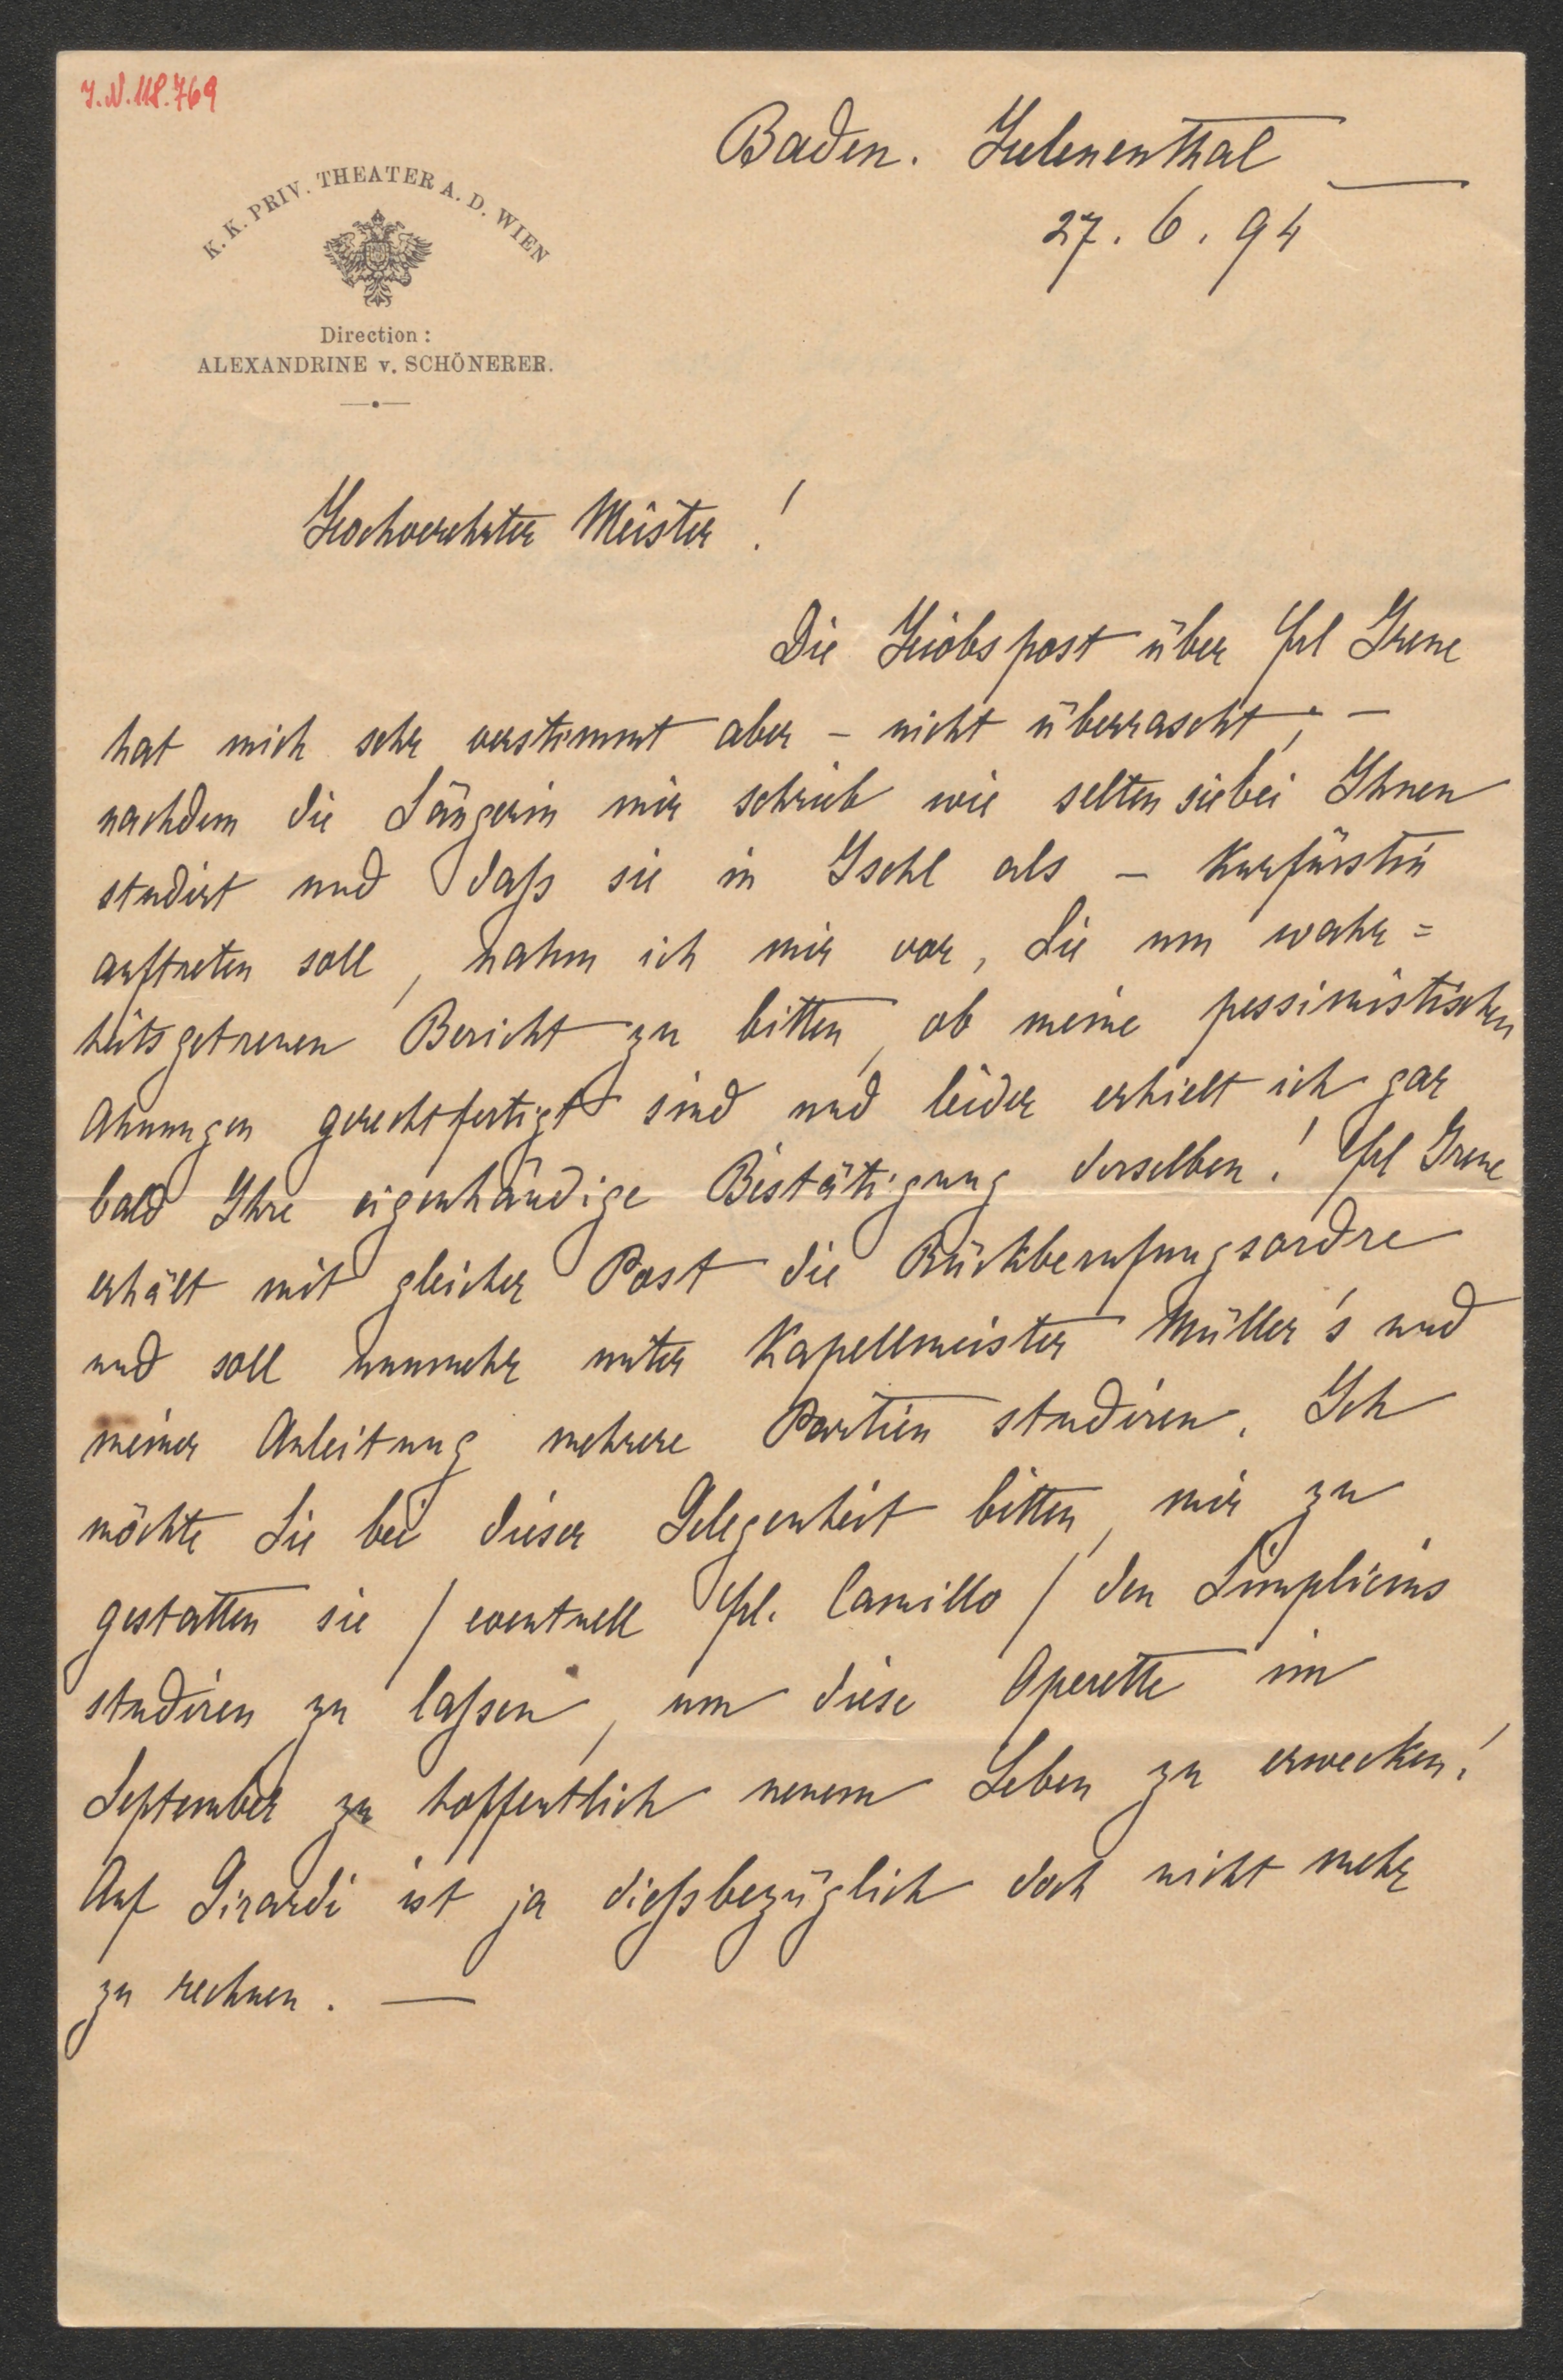 I.N. 118.769
Baden. Helenenthal
27. 6. 94
K. K. PRIV. THEATER A. D. WIEN
Direction:
ALEXANDRINE v. SCHÖNERER.
Hochverehrter Meister!
Die Hiobspost über Frl Irene
hat mich sehr verstimmt aber – nicht überrascht; –
nachdem die Sängerin mir schrieb wie selten sie bei Ihnen
studirt und daß sie in Ischl als – Kurfürstin
auftreten soll, nahm ich mir vor, Sie um wahr=
heitsgetreuen Bericht zu bitten, ob meine pessimistischen
Ahnungen gerechtfertigt sind und leider erhielt ich gar
bald Ihre eigenhändige Bestätigung derselben! Frl Irene
erhält mit gleicher Post die Rückberufungsordre
und soll nunmehr unter Kapellmeister Müller's und
meiner Anleitung mehrere Partien studiren. Ich
möchte Sie bei dieser Gelegenheit bitten, mir zu
gestatten sie / eventuell Frl. Camillo / den Simplicius
studiren zu laßen, um diese Operette im
September zu hoffentlich neuem Leben zu erwecken!
Auf Girardi ist ja dießbezüglich doch nicht mehr
zu rechnen. —